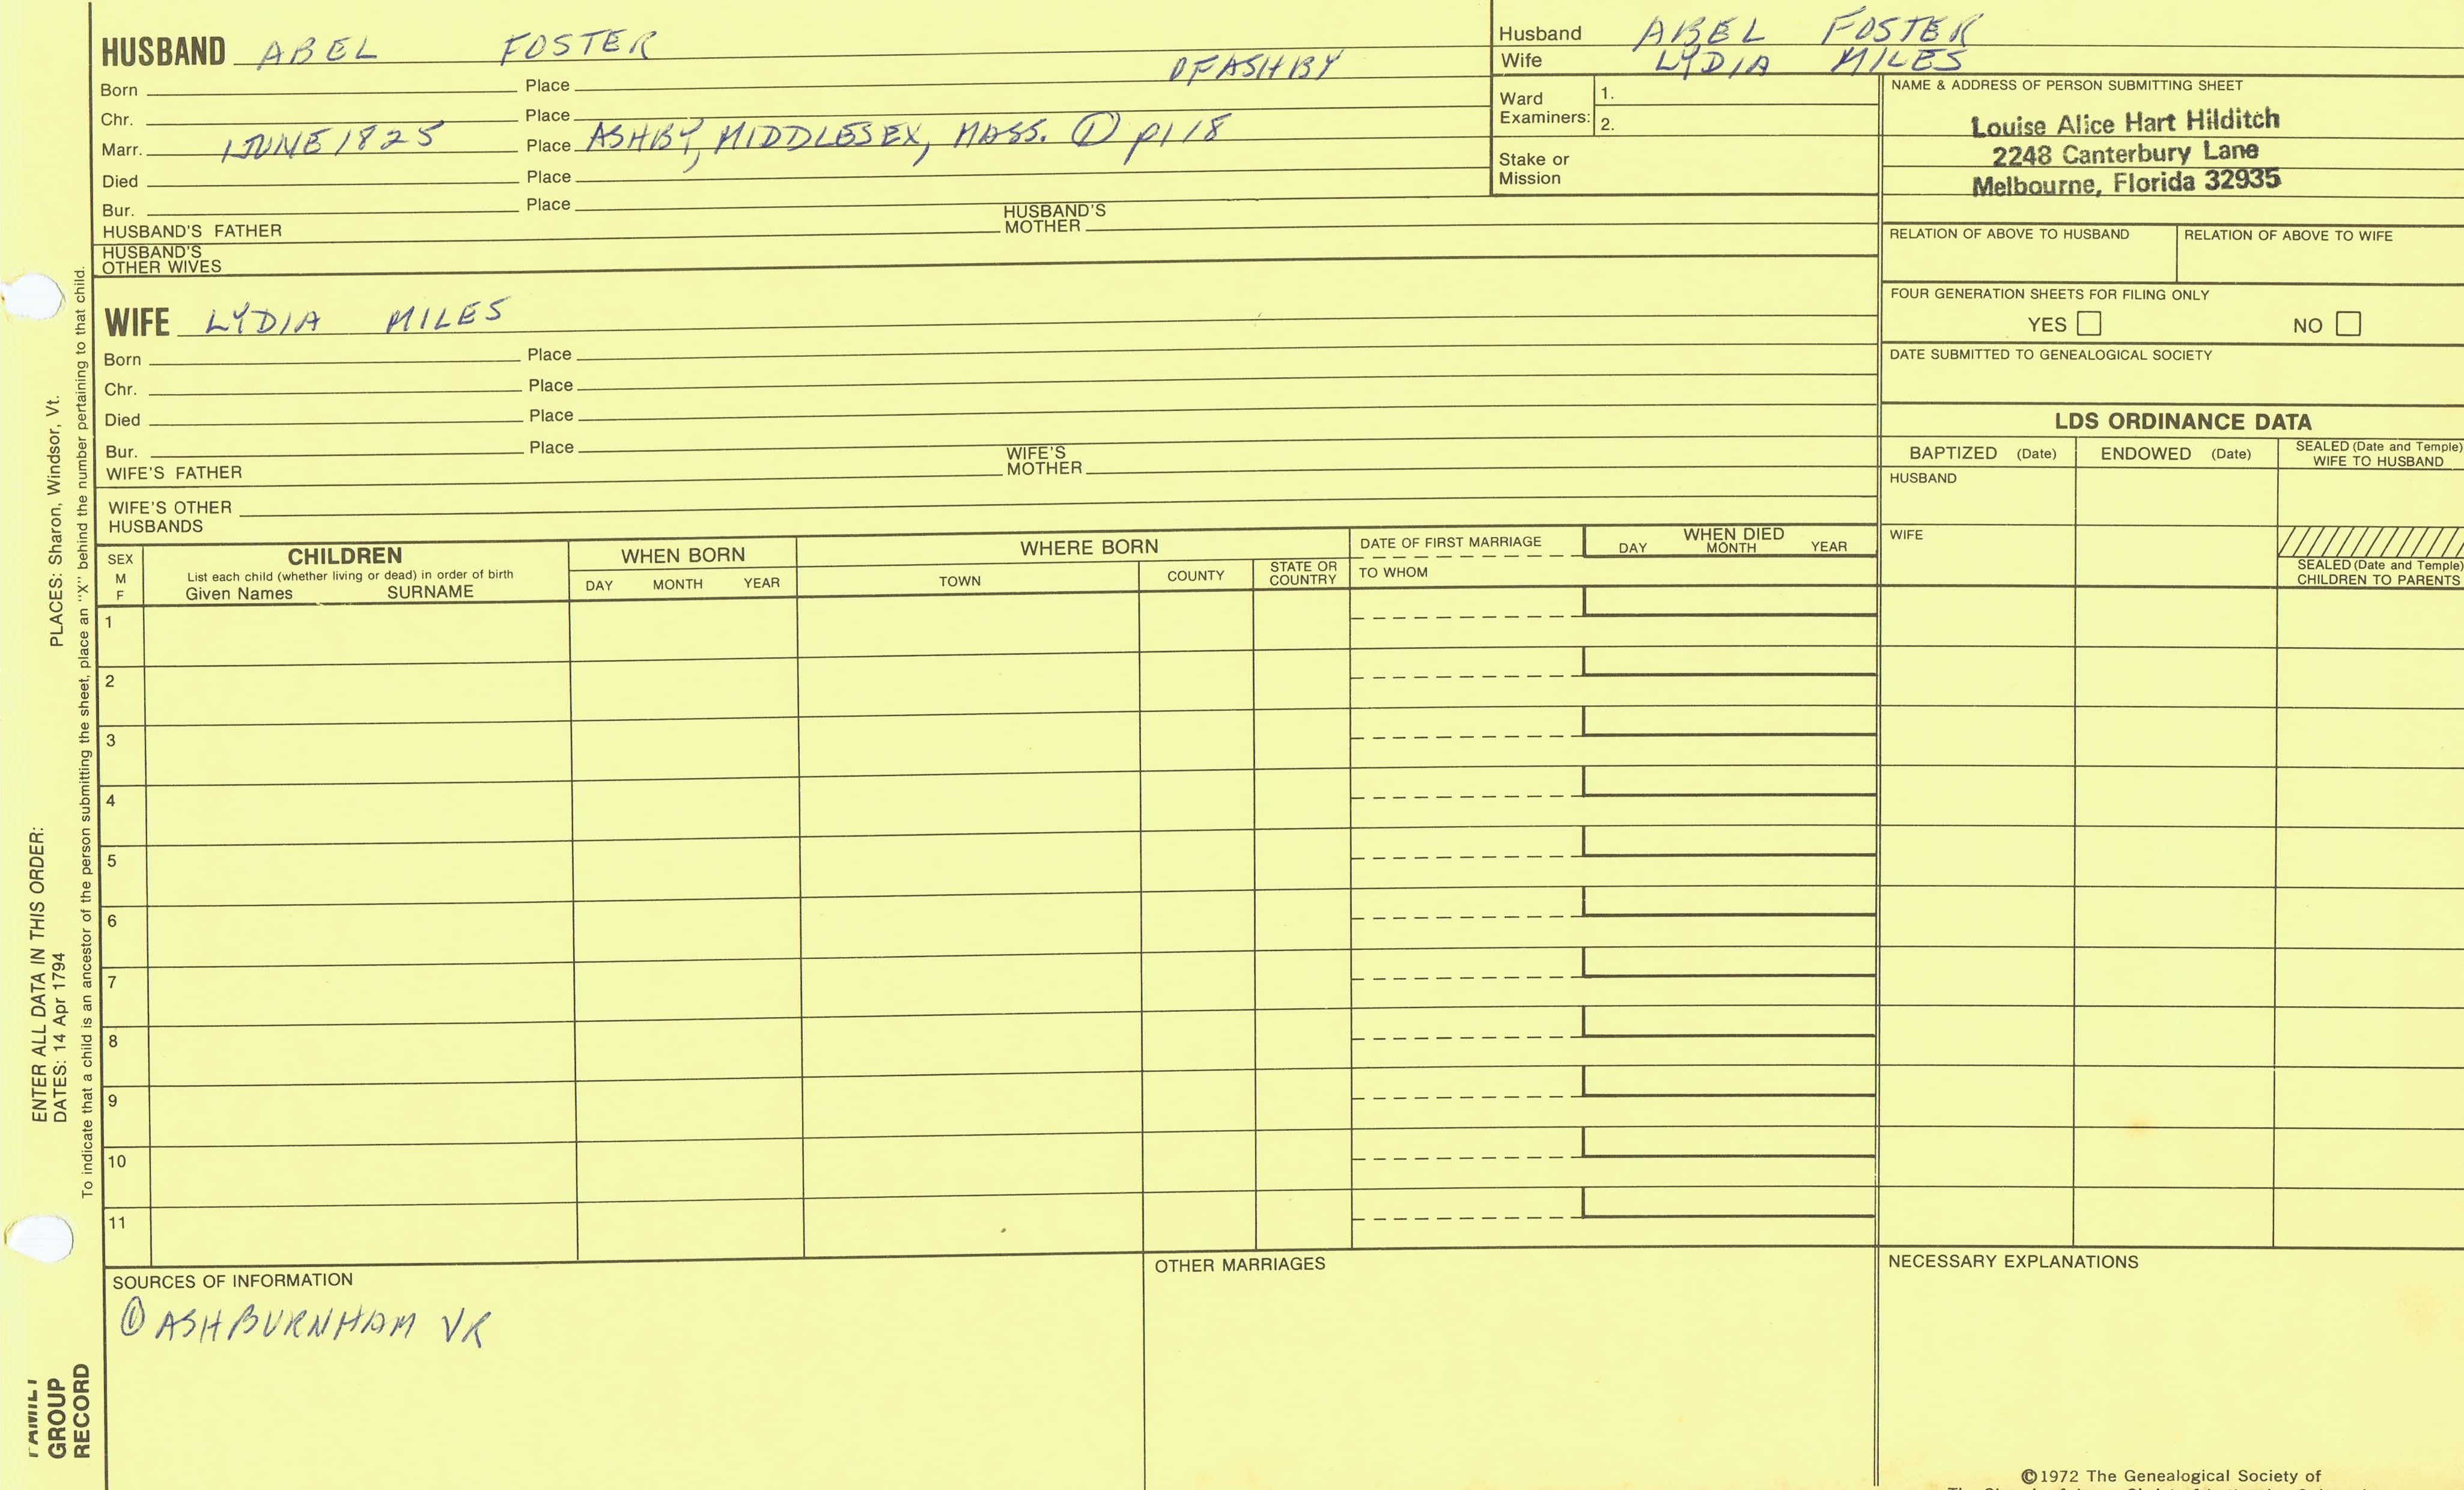 HUSBAND ABEL FOSTER
OF ASHBY
Born Place
Chr. Place
Marr. 1 JUNE 1825 Place ASHBY, MIDDLESEX, MASS. ① p118
Died Place
Bur. Place
HUSBAND'S FATHER HUSBAND'S MOTHER
HUSBAND'S
OTHER WIVES
Husband ABEL FOSTER
Wife LYDIA MILES
Ward
Examiners:
1.
2.
Stake or
Mission
NAME & ADDRESS OF PERSON SUBMITTING SHEET
Louise Alice Hart Hilditch
2248 Canterbury Lane
Melbourne, Florida 32935
RELATION OF ABOVE TO HUSBAND RELATION OF ABOVE TO WIFE
FOUR GENERATION SHEETS FOR FILING ONLY
YES NO
DATE SUBMITTED TO GENEALOGICAL SOCIETY
WIFE LYDIA MILES
Born Place
Chr. Place
Died Place
Bur. Place
WIFE'S FATHER WIFE'S MOTHER
WIFE'S OTHER
HUSBANDS
LDS ORDINANCE DATA
BAPTIZED (Date) ENDOWED (Date) SEALED (Date and Temple)
WIFE TO HUSBAND
HUSBAND
WIFE
SEALED (Date and Temple)
CHILDREN TO PARENTS
SEX
M
F
CHILDREN
List each child (whether living or dead) in order of birth
Given Names SURNAME
WHEN BORN
DAY MONTH YEAR
WHERE BORN
TOWN COUNTY STATE OR
COUNTRY
DATE OF FIRST MARRIAGE
TO WHOM
WHEN DIED
DAY MONTH YEAR
1
2
3
4
5
6
7
8
9
10
11
SOURCES OF INFORMATION
① ASHBURNHAM VR
OTHER MARRIAGES
NECESSARY EXPLANATIONS
©1972 The Genealogical Society of
ENTER ALL DATA IN THIS ORDER:
DATES: 14 Apr 1794 PLACES: Sharon, Windsor, Vt.
To indicate that a child is an ancestor of the person submitting the sheet, place an "X" behind the number pertaining to that child.
FAMILY
GROUP
RECORD